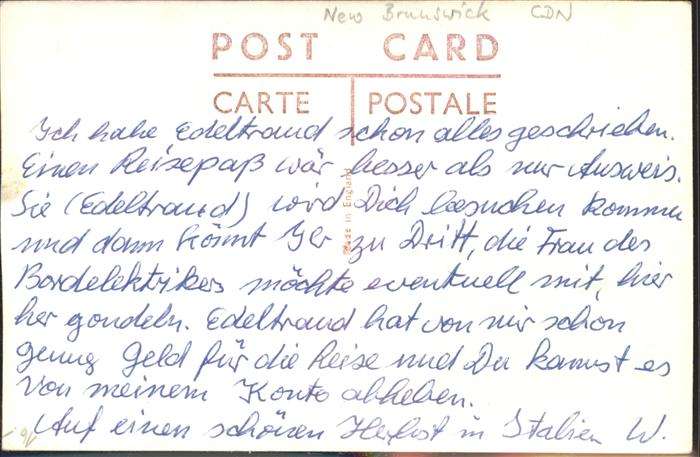 New Brunswick CDN
POST CARD
CARTE POSTALE
Ich habe Edeltraud schon alles geschrieben.
Einen Reisepaß wär besser als nur Ausweis.
Made in England
Sie (Edeltraud) wird Dich besuchen kommen
und dann könnt Ihr zu Dritt, die Frau des
Bordelektrikers möchte eventuell mit, hier
her gondeln. Edeltraud hat von mir schon
genug Geld für die Reise und Du kannst es
von meinem Konto abheben.
Auf einen schönen Herbst in Italien W.